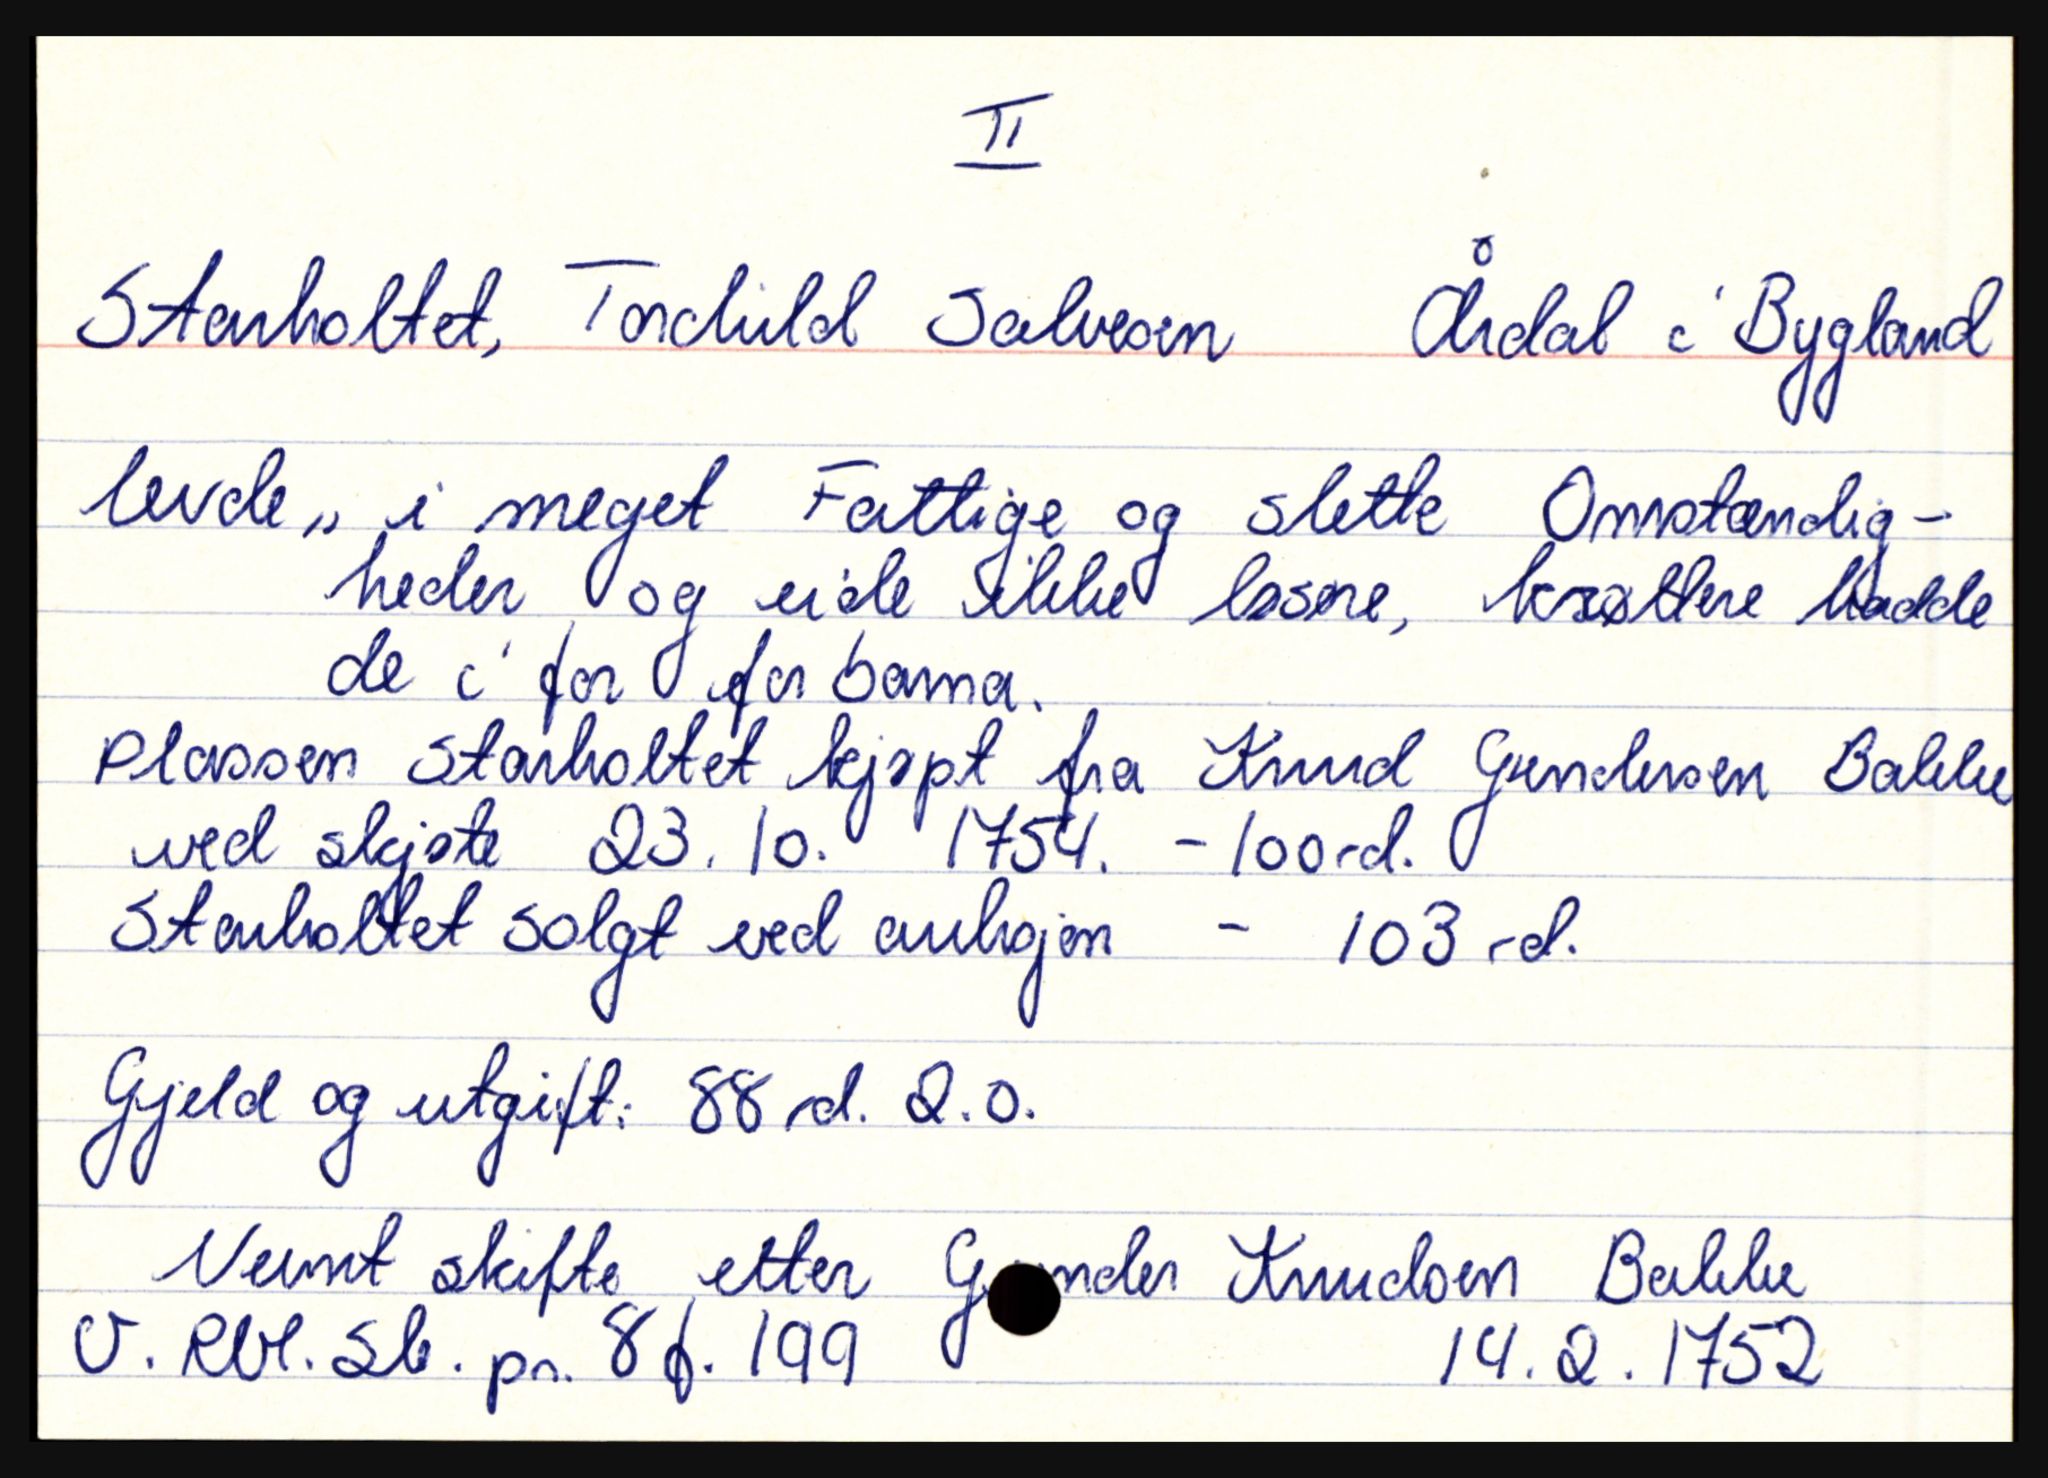 II
Starholtet, Torchild Salvesen Årdal i Bygland
levde „ i meget Fattige og slette Omstændig-
heder og eide ikke løsøre, krøttere hadde
de i for for barna.
Plassen Starholtet kjøpt fra Knud Gundersen Bakke
ved skjøte 23. 10. 1754. - 100 rd.
Starholtet solgt ved auksjon - 103 rd.
Gjeld og utgift: 88 rd. 2.0.
Nevnt skifte etter Gunder Knudsen Bakke
V. Rbl. Sk. pr. 8 f. 199 14. 2. 1752